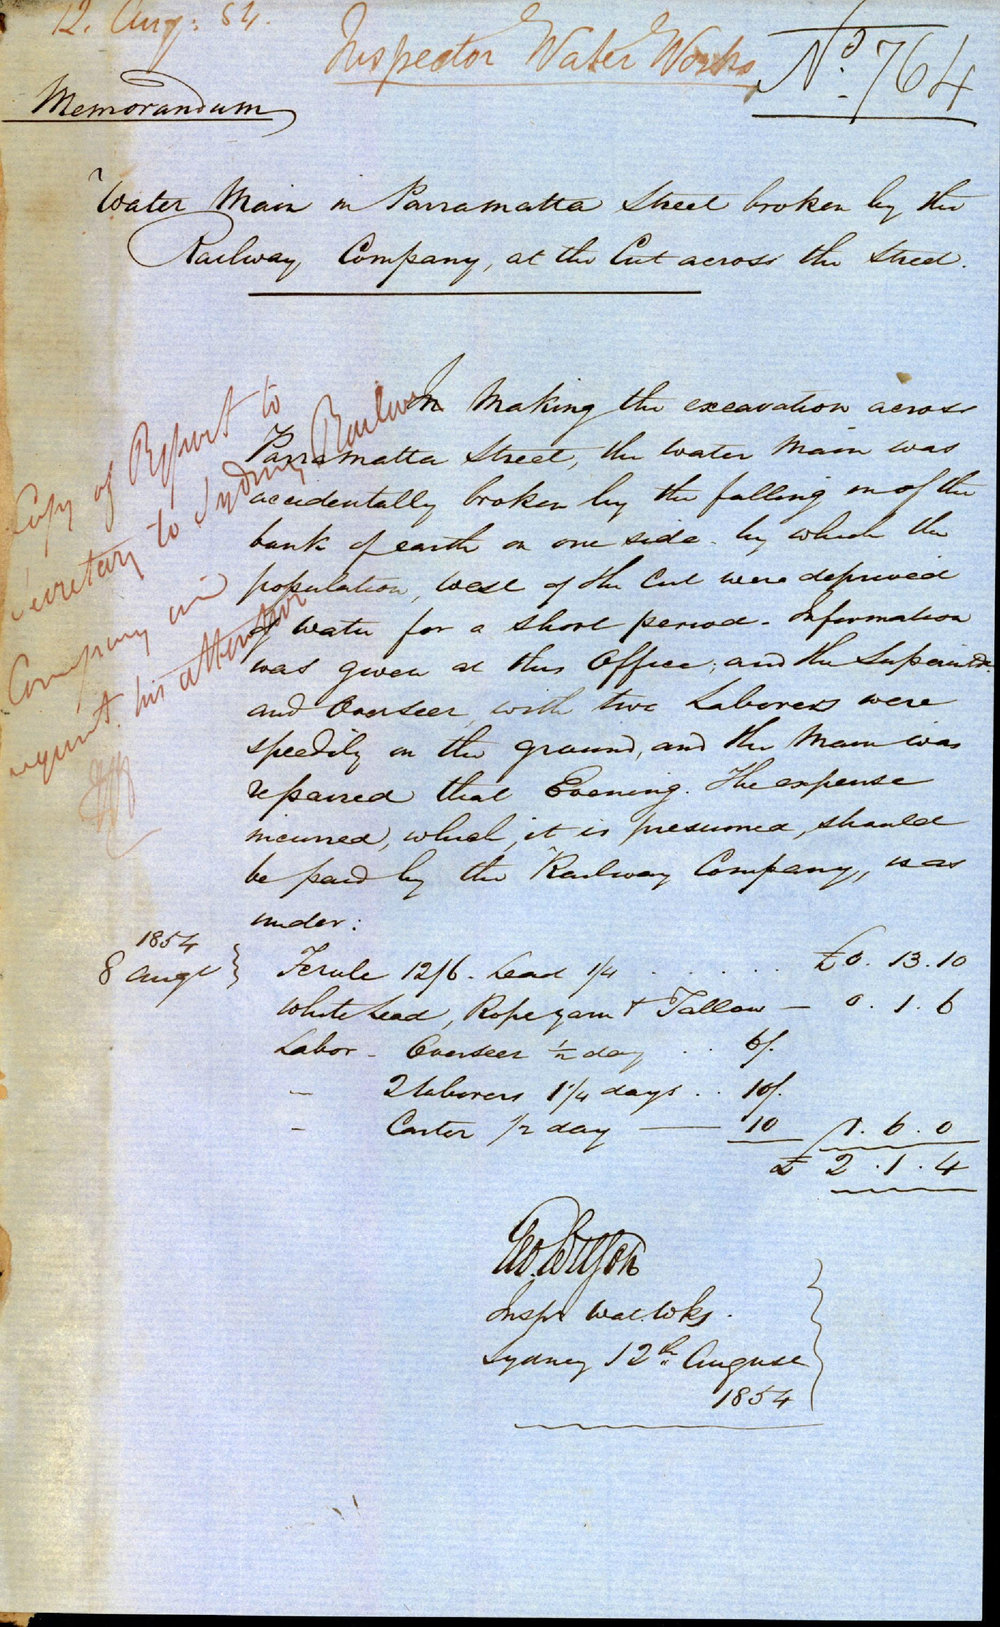 12. Aug: 54.
Inspector Water Works
No. 764
Memorandum
Water Main in Parramatta Street broken by the
Railway Company, at the Cut across the Street.
Copy of Report to
Secretary to Sydney Railway
Company and
request his attention
In making the excavation across
Parramatta Street, the water Main was
accidentally broken by the falling in of the
bank of earth on one side - by which the
population, West of the Cut were deprived
of water for a short period - Information
was given at this Office; and the Superintdt.
and Overseer, with two Laborers were
speedily on the ground, and the Main was
repaired that Evening. The expense
incurred, which, it is presumed, should
be paid by the Railway Company, is as
under:
1854
8 Augt } Ferule 12/6. Lead 1/4 . . . . . . £0. 13. 10
White Lead, Rope yarn & Tallow — 0. 1. 6
Labor - Overseer ½ day . . 6/.
- 2 laborers 1¼ days . . 10/.
- Carter ½ day — 10 1. 6. 0
£ 2. 1. 4
Geo.
Inspr Wat. Wks.
Sydney 12th August
1854